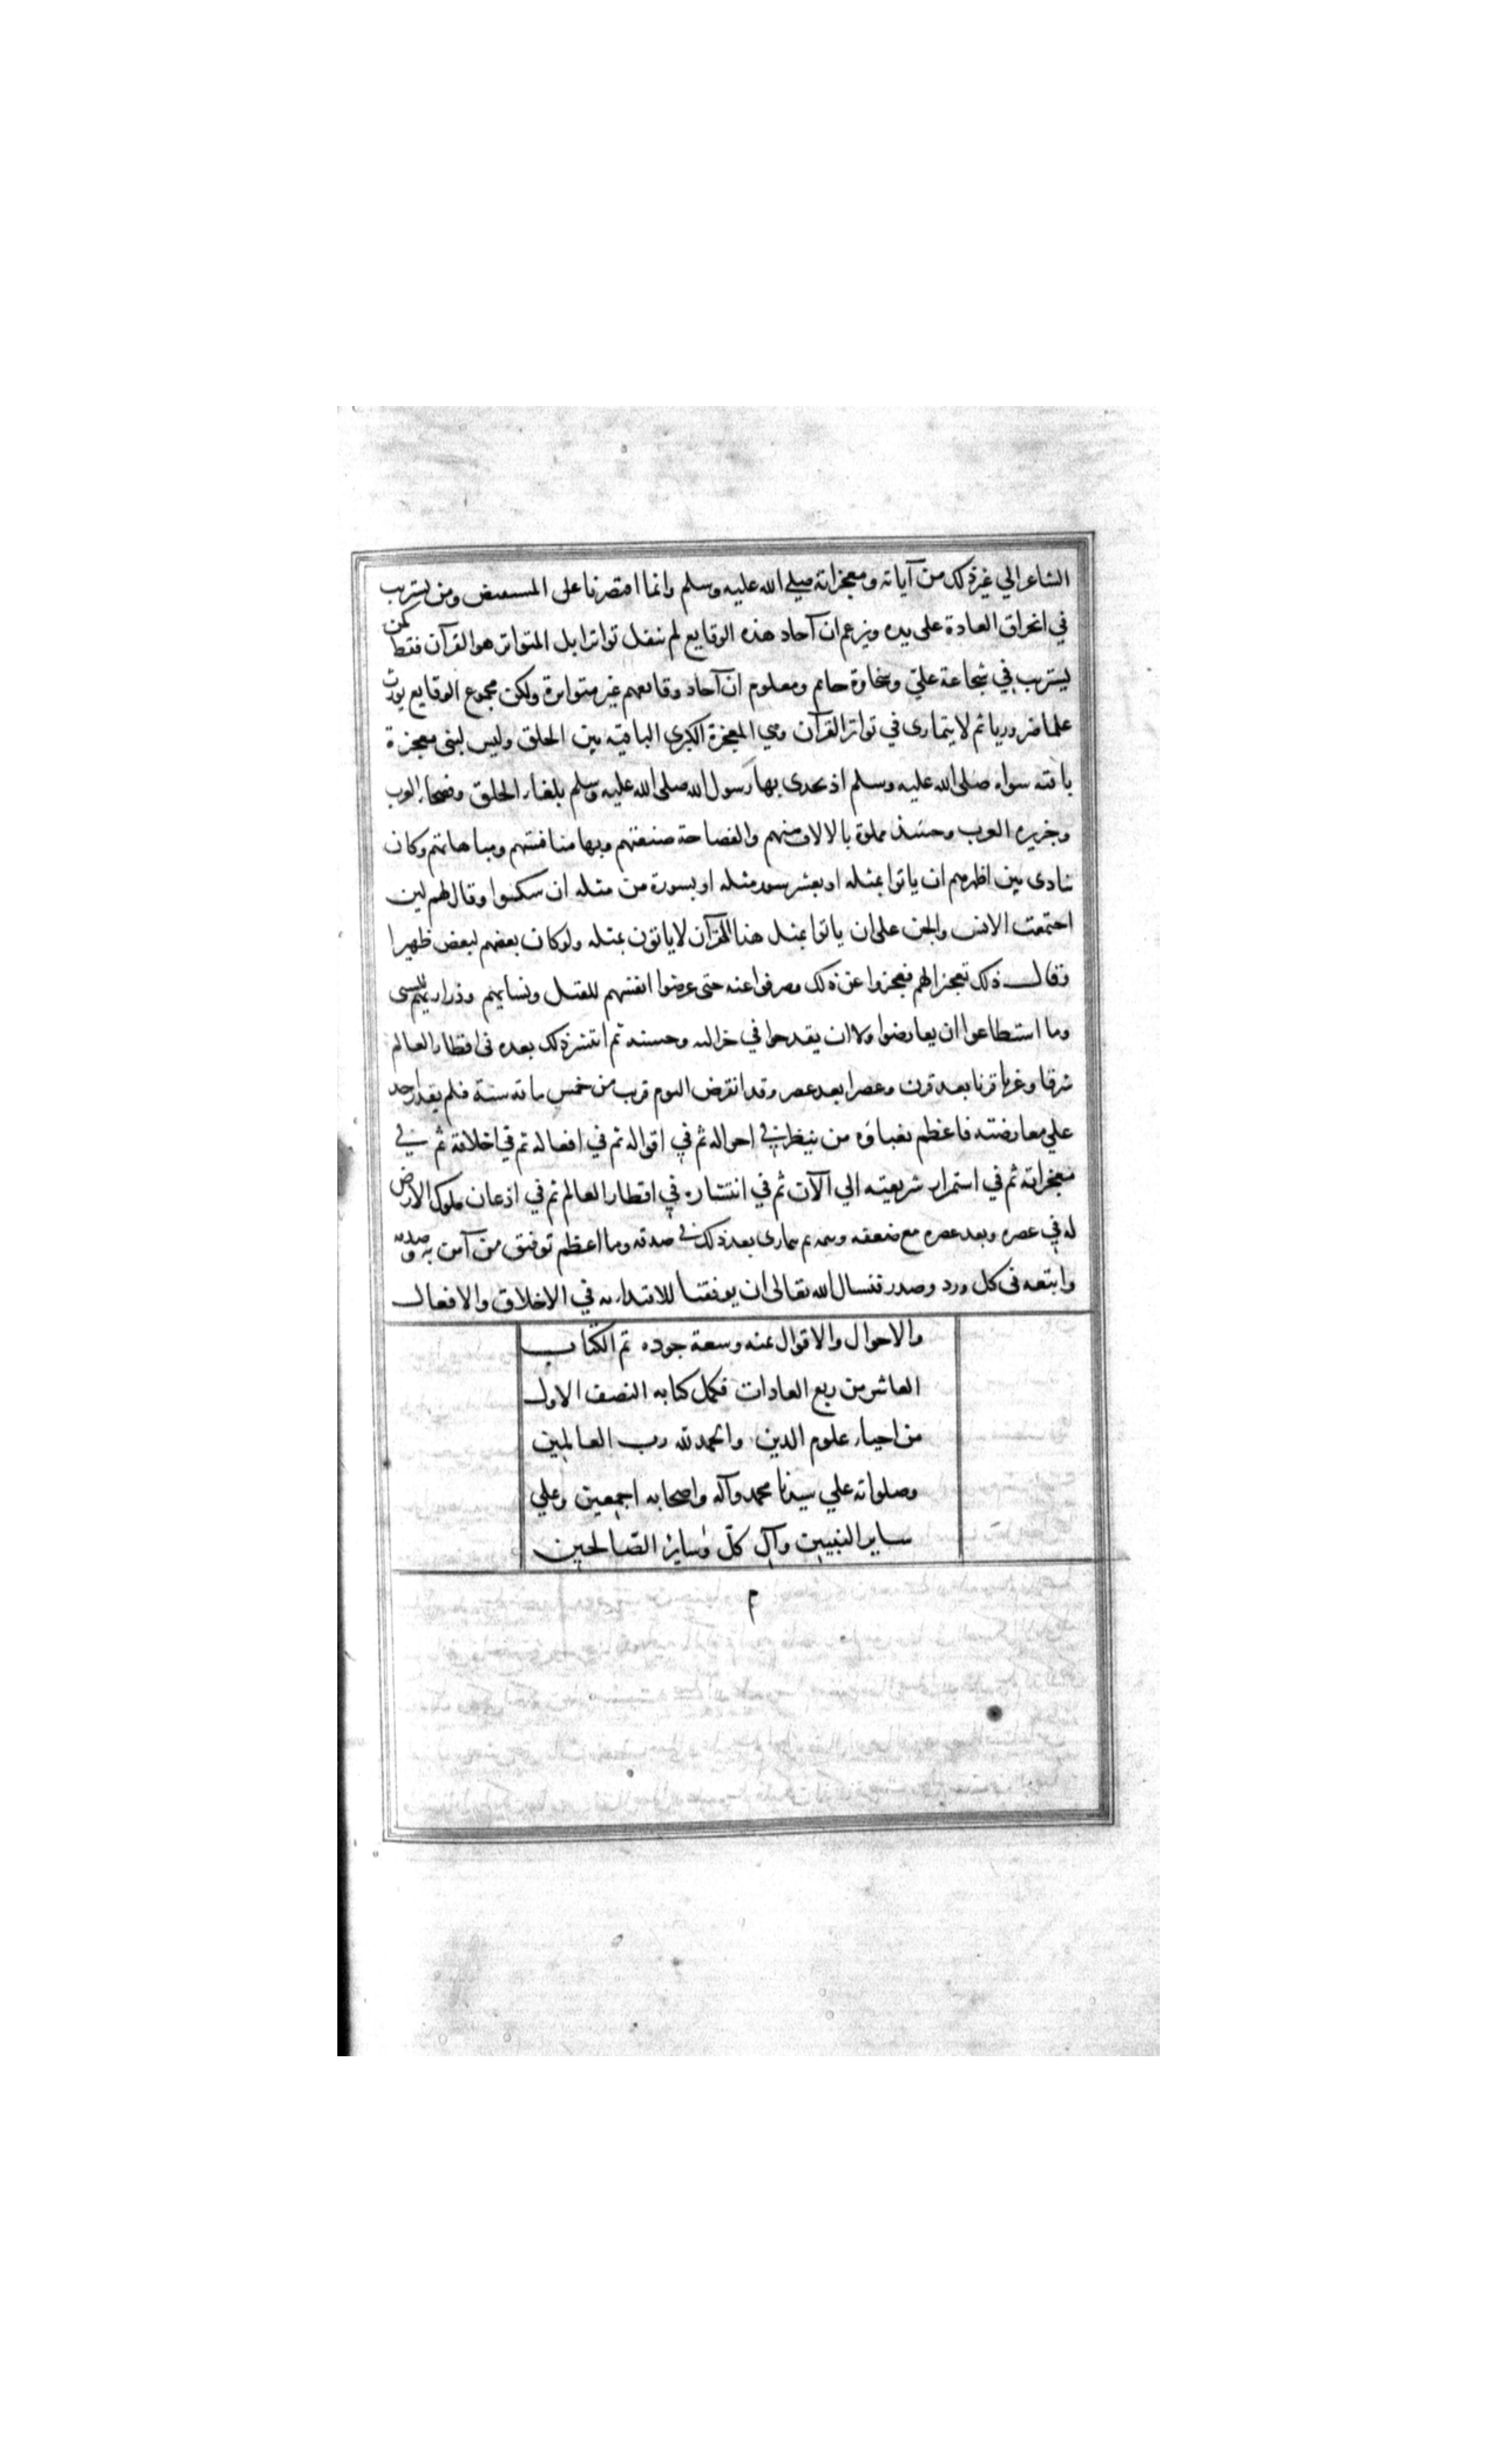 الشاعر الي غير ذلك من آياته ومعجزاته صلي الله عليه وسلم وانما اقتصرنا على المستفيض ومن يستريب
في انخراق العادة على يده ويزعم ان آحاد هذه الوقايع لم تنقل تواترا بل المتواتر هو القرآن فقط كمن
يستريب في شجاعة علي وسخاوة حاتم ومعلوم ان آحاد وقايعهم غير متواترة ولكن مجموع الوقايع يورث
علما ضروريا ثم لا يتمارى في تواتر القرآن وهي المعجزة الكبرى الباقيه بين الخلق وليس لنبي معجزة
باقيه سواه صلى الله عليه وسلم اذ تحدى بها رسول الله صلى الله عليه وسلم بلغاء الخلق وفصحاء العرب
وجزيره العرب وحينئذ مملوة بالالاف منهم والفصاحة صنعتهم وبها منافستهم ومباهاتهم وكان
ينادى بين اظهرهم ان ياتوا بمثله او بعشر سور مثله او بسورة من مثله ان شكوا وقال لهم لين
اجتمعت الانس والجن على ان ياتوا بمثل هذا القرآن لا ياتون بمثله ولو كان بعضهم لبعض ظهيرا
وقال ذلك تعجيزا لهم فعجزوا عن ذلك وصرفوا عنه حتى عرضوا انفسهم للقتل ونسايهم وذراريهم للسبى
وما استطاعوا ان يعارضوا ولا ان يقدحوا في جزالته وحسنه ثم انتشر ذلك بعده فى اقطار العالم
شرقا وغربا قرنا بعد قرن وعصرا بعد عصر وقد انقرض اليوم قرب من خمس ماته سنة فلم يقدر احد
علي معارضته فاعظم بغباوة من ينظر في احواله ثم في اقواله ثم في افعاله ثم في اخلاقه ثم في
معجزاته ثم في استمرار شريعته الي الآن ثم في انتشاره في اقطار العالم ثم في اذعان ملوك الارض
له في عصره وبعد عصره مع ضعفه ويتمه ثم يتمارى بعد ذلك في صدقه وما اعظم توفيق من آمن به وصدقه
واتبعه فى كل ورد وصدر فنسال الله تعالى ان يوفقنا للاقتداء به في الاخلاق والافعال
والاحوال والاقوال بمنه وسعة جوده تم الكتاب
العاشر من ربع العادات فكمل كتابه النصف الاول
من احياء علوم الدين والحمد لله رب العالمين
وصلواته علي سيدنا محمد وآله واصحابه اجمعين وعلي
ساير النبيين وآل كلّ وساير الصّالحين
م